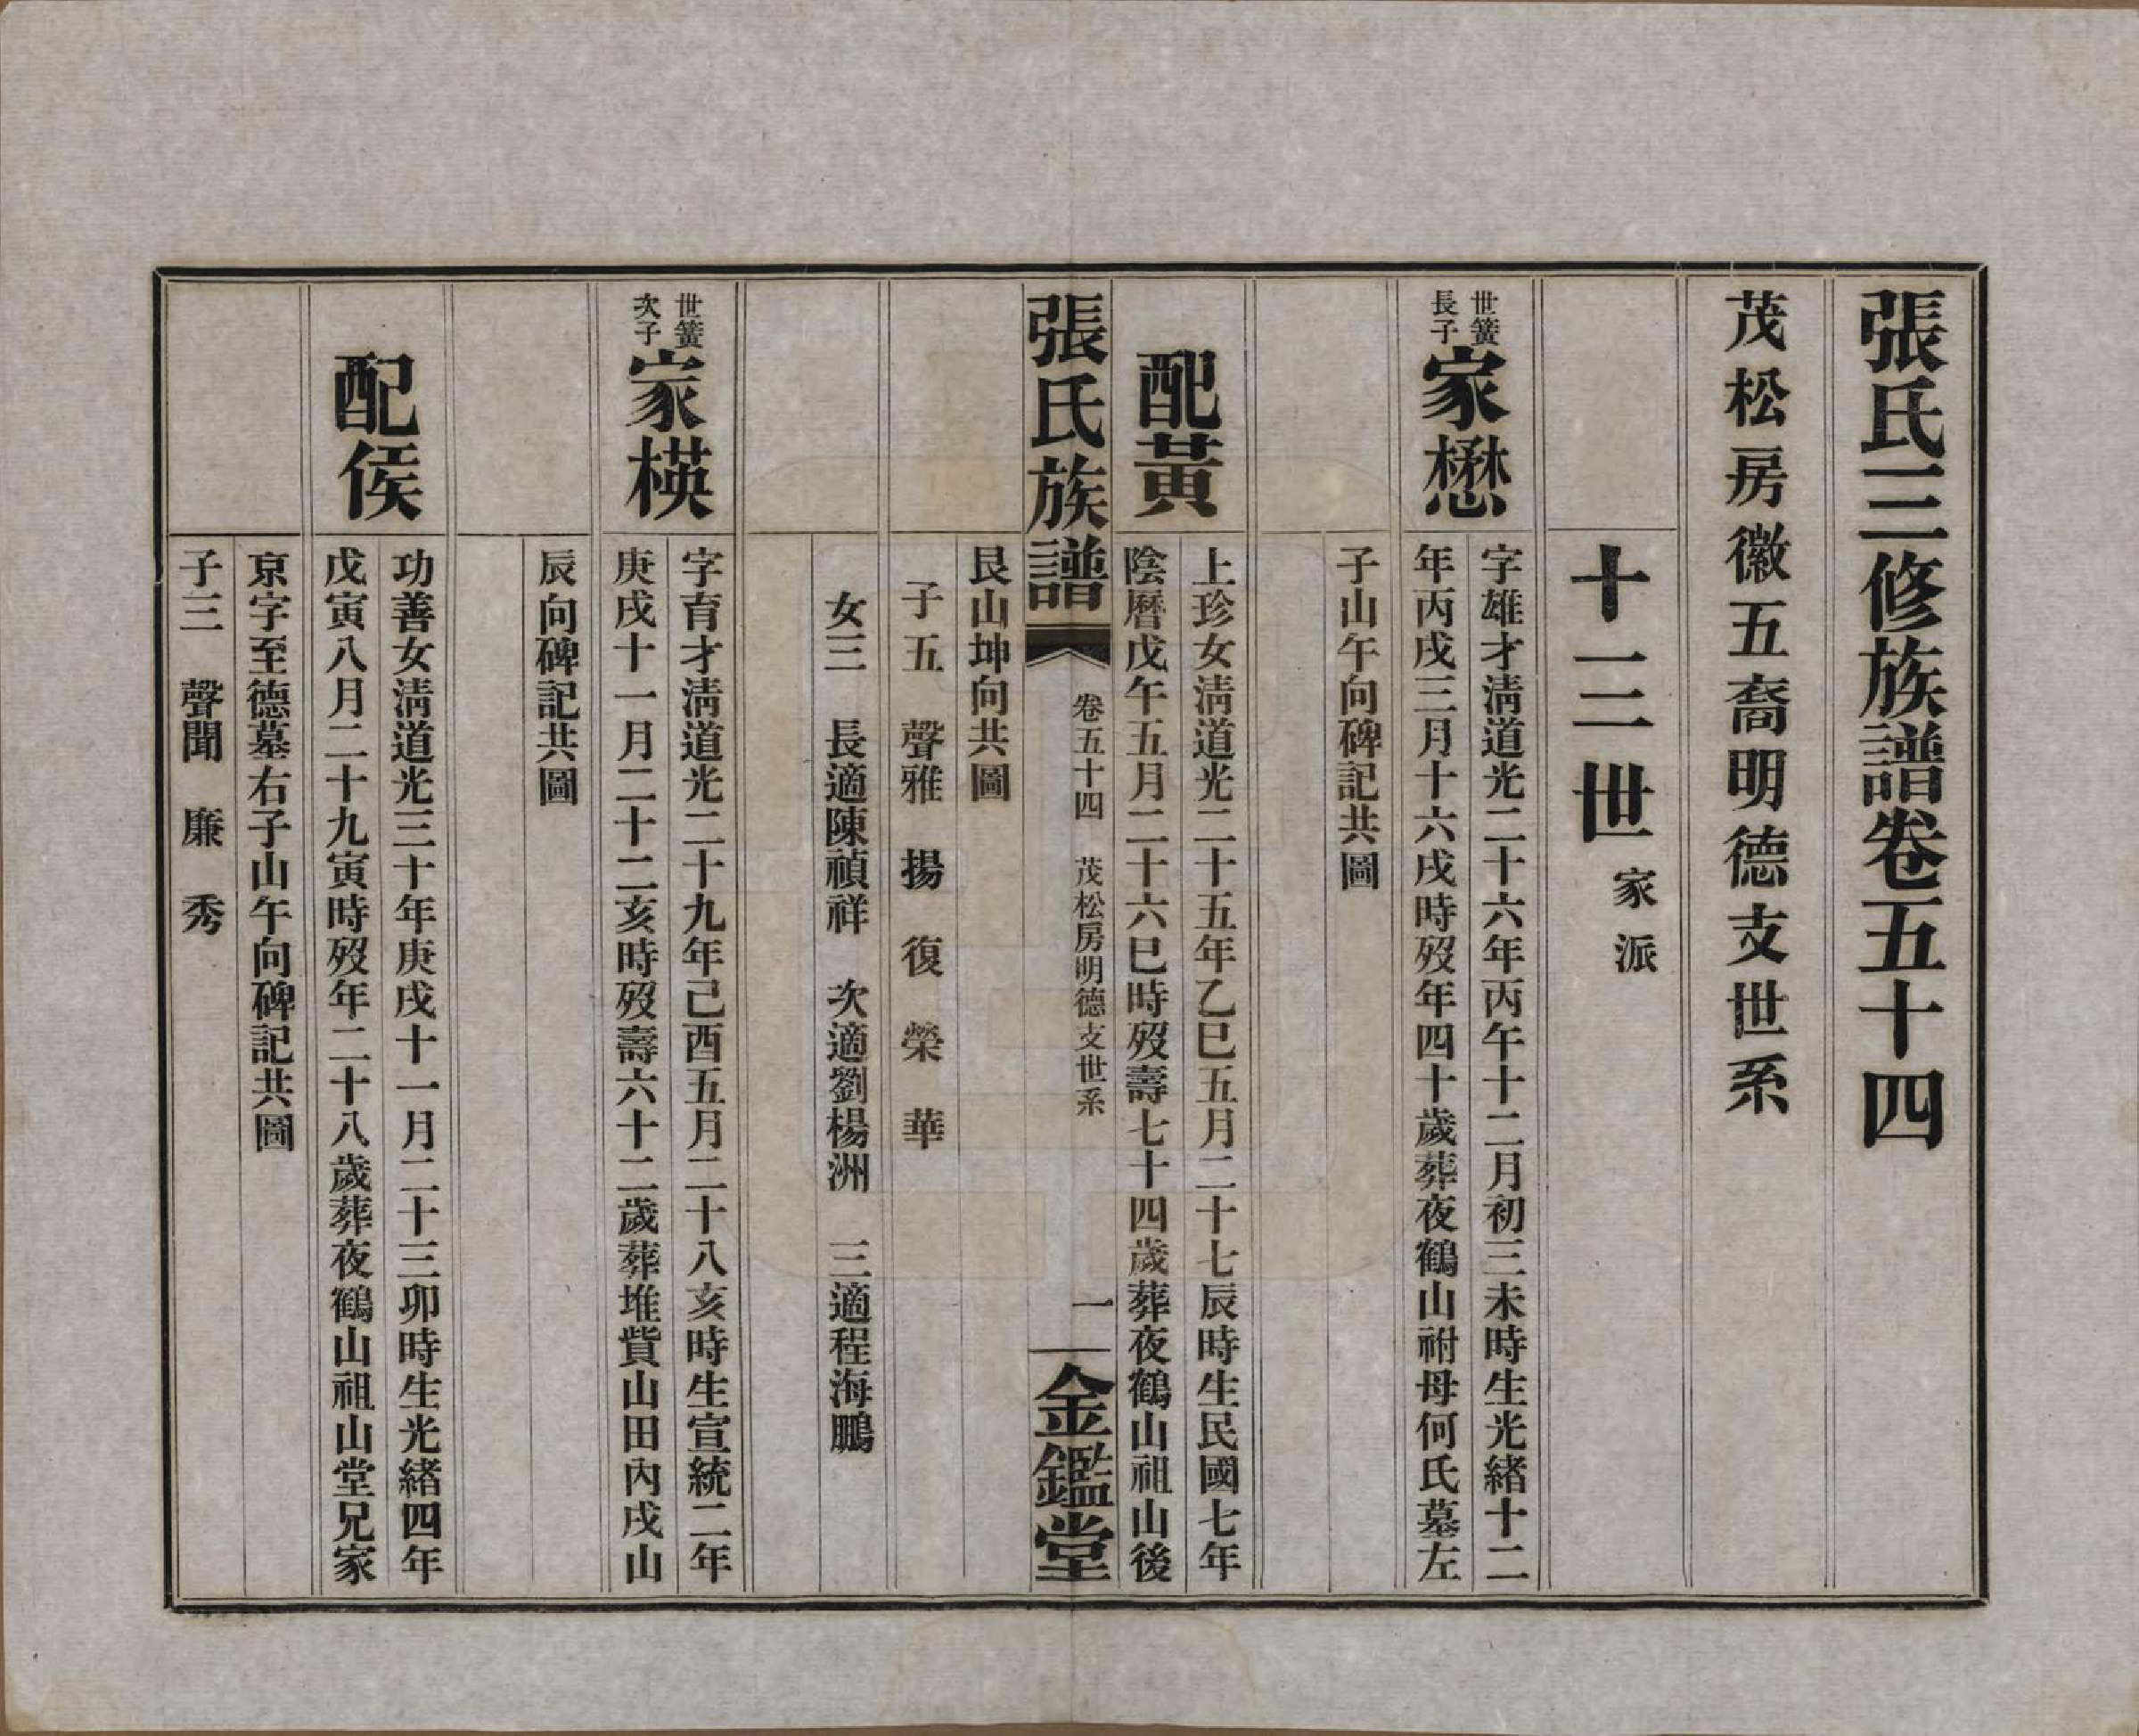 張氏三修族譜卷五十四
茂松房徽五裔明德支世系
十三世 家派
世簧長子 家懋
字雄才淸道光二十六年丙午十二月初三未時生光緒十二
年丙戌三月十六戌時歿年四十歲葬夜鶴山祔母何氏墓左
子山午向碑記共圖
配黃
上珍女淸道光二十五年乙巳五月二十七辰時生民國七年
陰曆戊午五月二十六巳時歿壽七十四歲葬夜鶴山祖山後
張氏族譜 卷五十四 茂松房明德支世系 一 金鑑堂
艮山坤向共圖
子五 聲雅 揚 復 榮 華
女三 長適陳禎祥 次適劉楊洲 三適程海鵬
世簧次子 家楧
字育才淸道光二十九年己酉五月二十八亥時生宣統二年
庚戌十一月二十二亥時歿壽六十二歲葬堆貲山田內戌山
辰向碑記共圖
配侯
功善女淸道光三十年庚戌十一月二十三卯時生光緒四年
戊寅八月二十九寅時歿年二十八歲葬夜鶴山祖山堂兄家
京字至德墓右子山午向碑記共圖
子三 聲聞 廉 秀